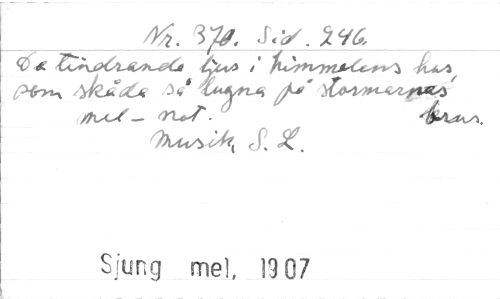 Nr. 370. Sid. 246.
De tindrande ljus i himmelens hus,
som skåda så lugna på stormarnas
mel- not. brus.
Musik, S. L.
Sjung mel, 1907